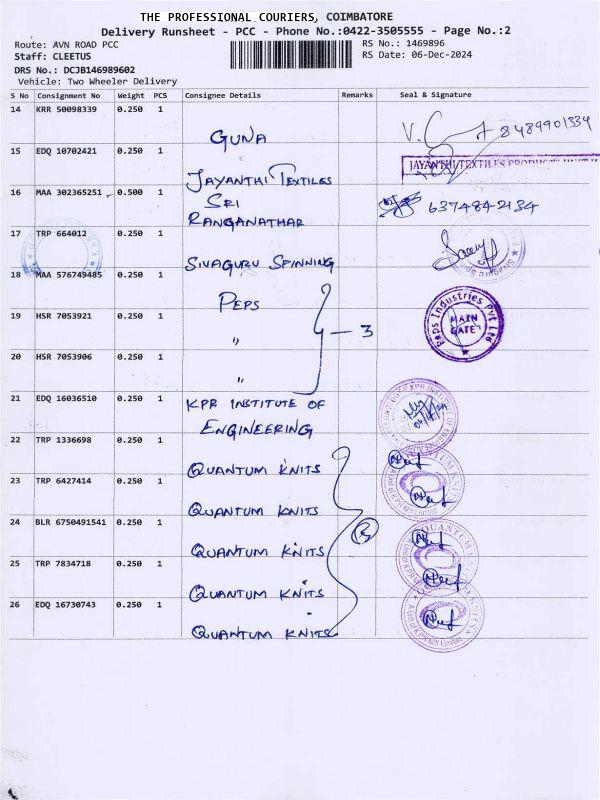 THE PROFESSIONAL COURIERS, COIMBATORE
Delivery Runsheet - PCC - Phone No.:0422-3505555 - Page No.:2
Route: AVN ROAD PCC
RS No.: 1469896
Staff: CLEETUS
RS Date: 06-Dec-2024
DRS No.: DCJB146989602
Vehicle: Two Wheeler Delivery
S No Consignment No Weight PCS Consignee Details Remarks Seal & Signature
14 KRR 50098339 0.250 1
GUNA
8489901334
15 EDQ 10702421 0.250 1
JAYANTHI TEXTILES
JAYANTHI TEXTILES
16 MAA 302365251 0.500 1
SRI
RANGANATHAR
6374842134
17 TRP 664012 0.250 1
SIVAGURU SPINNING
18 MAA 576749485 0.250 1
PEPS
19 HSR 7053921 0.250 1
"
3
Peps Industries Pvt Ltd
MAIN
GATE
20 HSR 7053906 0.250 1
"
21 EDQ 16036510 0.250 1
KPR INSTITUTE OF
ENGINEERING
22 TRP 1336698 0.250 1
QUANTUM KNITS
23 TRP 6427414 0.250 1
QUANTUM KNITS
24 BLR 6750491541 0.250 1
5
QUANTUM KNITS
25 TRP 7834718 0.250 1
QUANTUM KNITS
26 EDQ 16730743 0.250 1
QUANTUM KNITS